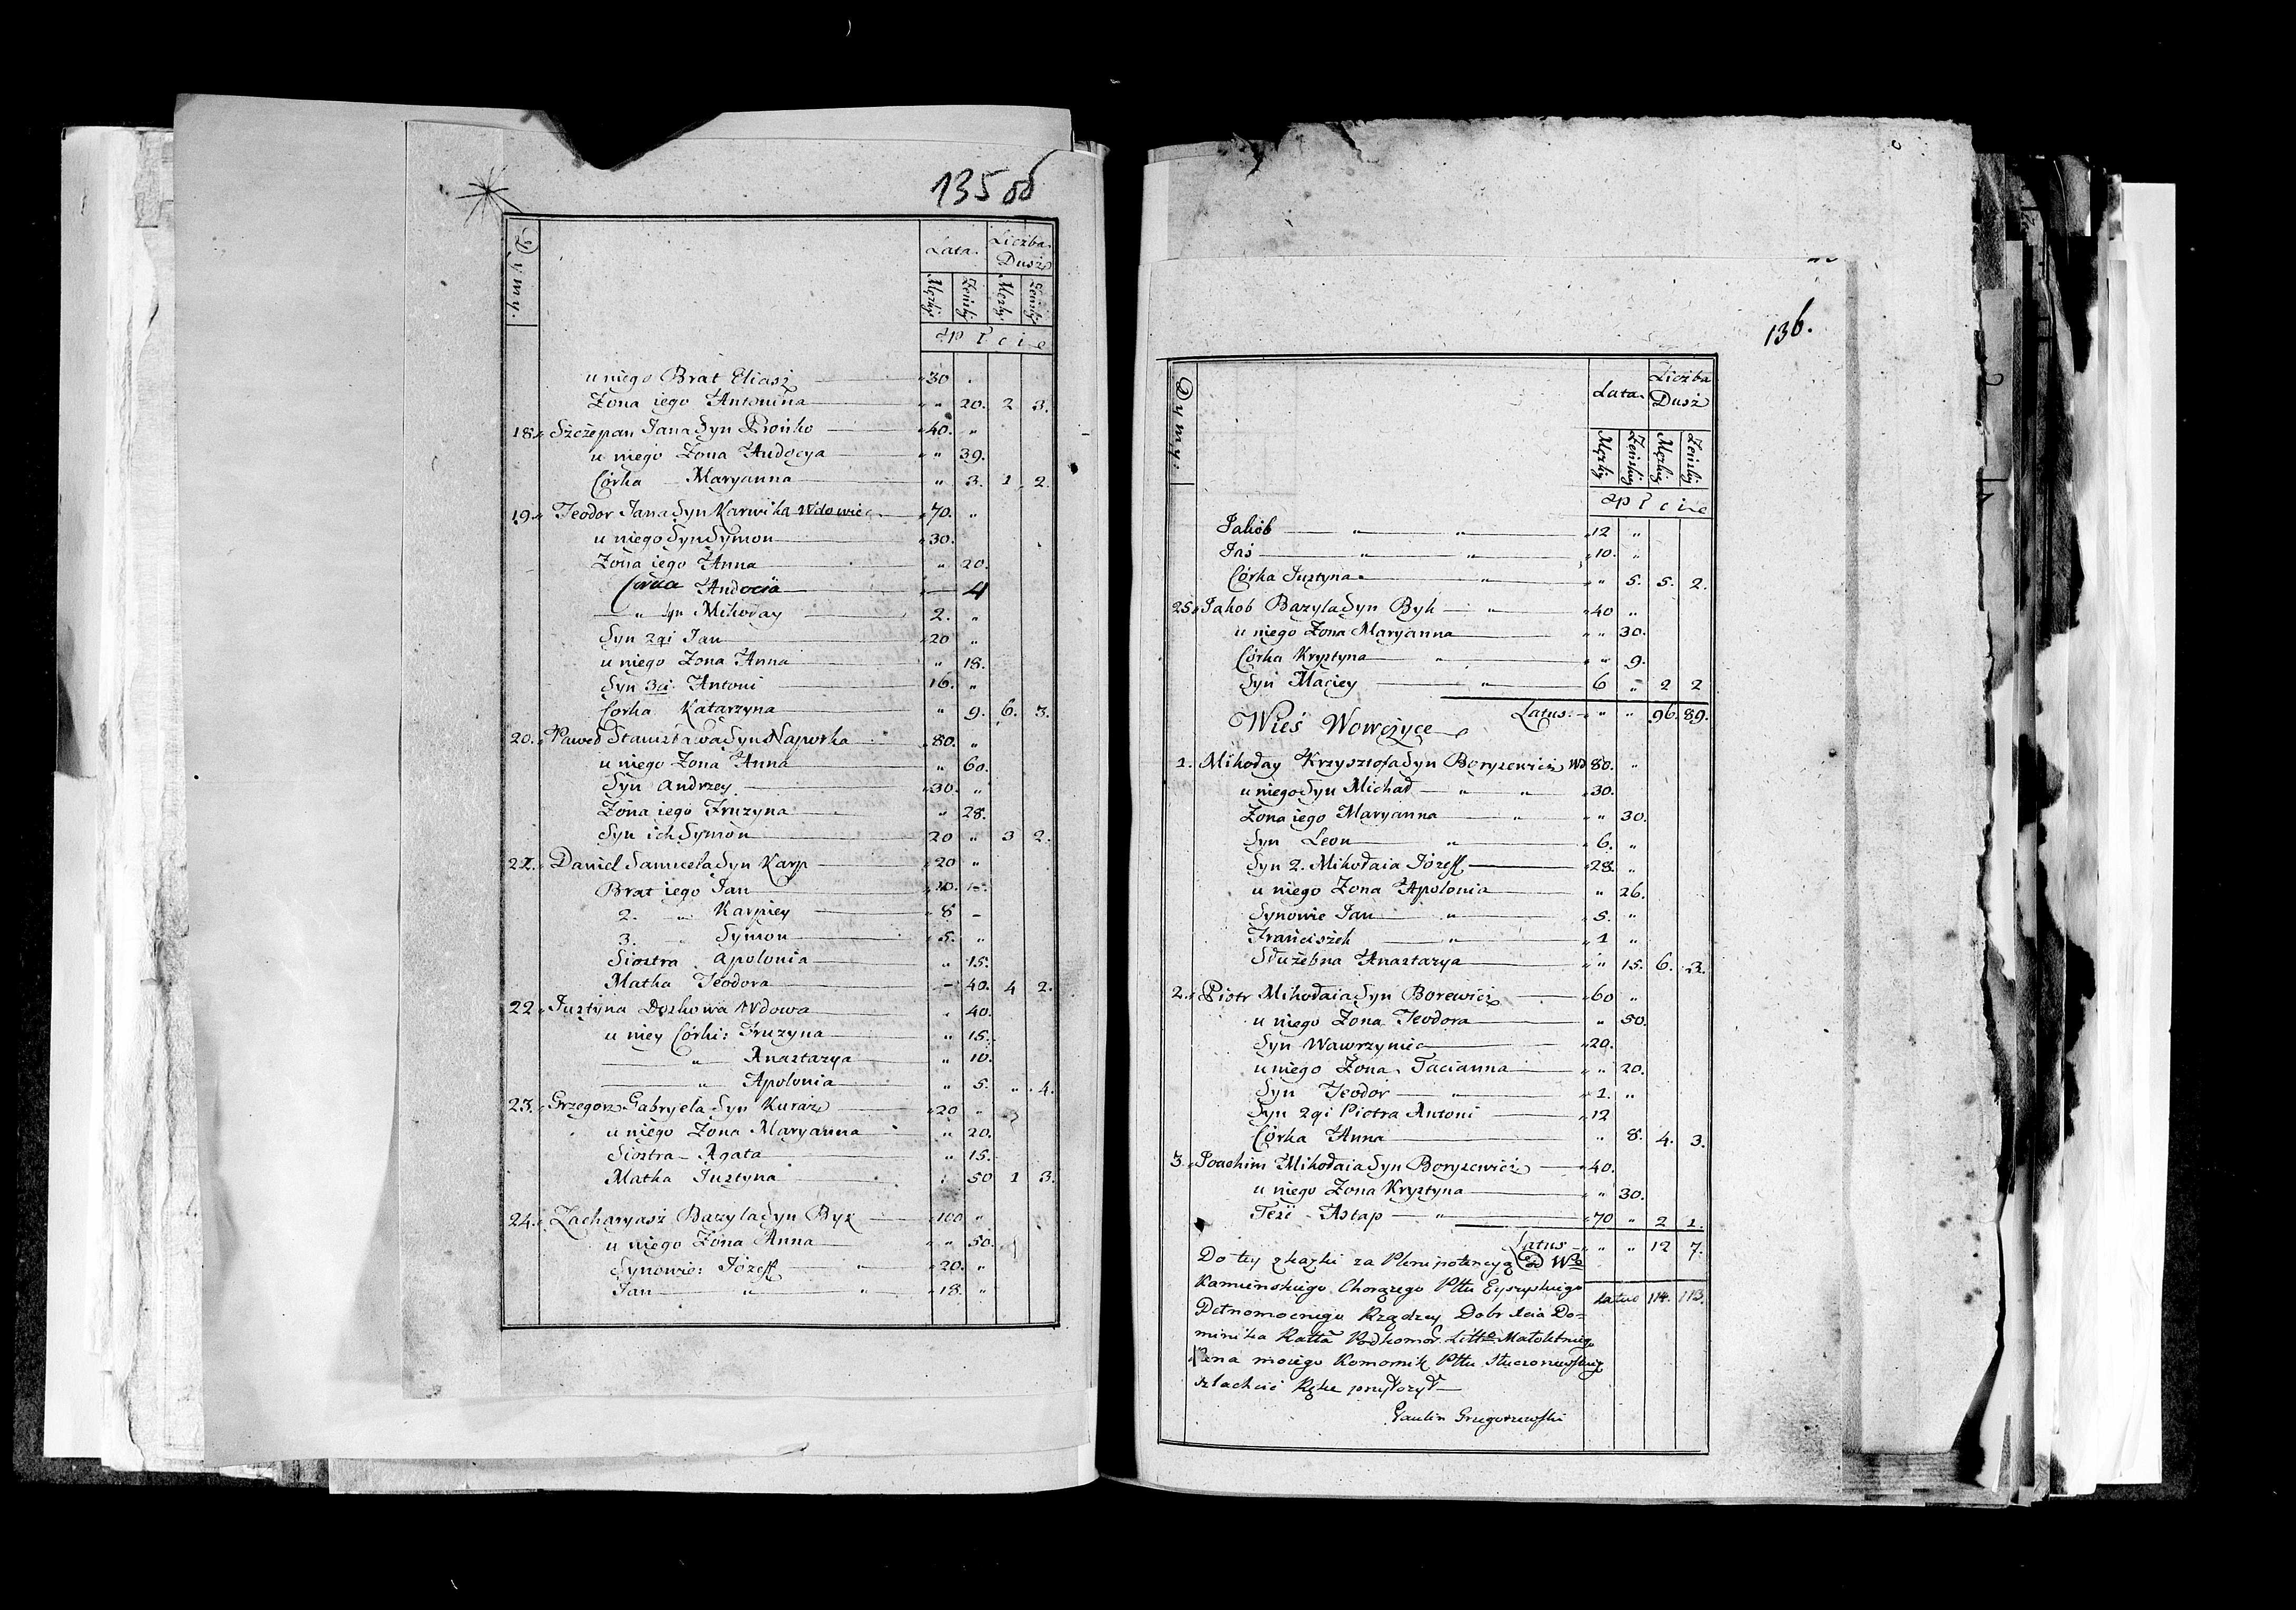 135 об
Dymy.
Lata. Liczba Dusz
Męzkiy Żeńskiy Męzkiy Żeńskiy
płcie
u niego Brat Eliasz " 30 "
Zona iego Antonina " " 20. 2 3.
18. Szczepan Jana Syn Pronko " 40. "
u niego Zona Audocya " " 39.
Córka Maryanna " 3. 1 2.
19. Teodor Jana Syn Karwika Wdowiec " 70. "
u niego Syn Symon " 30.
Zona iego Anna " 20.
Corka Audocia — 4
" Syn Mikołay 2. "
Syn 2gi Jan " 20 "
u niego Zona Anna " 18.
Syn 3ci Antoni 16. "
Corka Katarzyna " 9. 6. 3.
20. Paweł Stanisława Syn Naporka " 80. "
u niego Zona Anna " 60.
Syn Andrzey " 30. "
Zona iego Fruzyna " 28.
Syn ich Symon 20 " 3 2.
21. Daniel Samuela Syn Karp " 20 "
Brat iego Jan " 10. —
2. " Karpiey " 8 –
3. " Symon " 5. "
Siostra Apolonia " 15.
Matka Teodora — 40. 4 2.
22. Justyna Wdowa " 40.
u niey Córki: Fruzyna " 15.
" Anastazya " 10.
" Apolonia " 5. " 4.
23. Grzegorz Gabryela Syn Kuraz " 20 "
u niego Zona Maryanna " 20.
Siostra – Agata " 15.
Matka Justyna " 50 1 3.
24. Zacharyasz Bazyla Syn Byk " 100 "
u niego Zona Anna " " 50.
Synowie: Józeff " " 20. "
Jan " " " 18. "
136.
Dymy.
Lata. Liczba Dusz
Męzkiy Żeńskiy Męzkiy Żeńskiy
płcie
Jakób " " " 12 "
Jaś " " " 10. "
Córka Justyna " " " 5. 5. 2.
25. Jakob Bazyla Syn Byk " " 40 "
u niego Zona Maryanna " " 30.
Córka Krystyna " " " 9.
Syn Maciey " 6 " 2 2
Latus: " " 96. 89.
Wieś Wowczyce
1. Mikołay Krzysztofa Syn Borysewicz Wd 80. "
u niego Syn Michał " " " 30.
Zona iego Maryanna " " " 30.
Syn Leon " " 6. "
Syn 2. Mikołaia Józeff " 28. "
u niego Zona Apolonia " 26.
Synowie Jan " " 5. "
Franciszek " " 1 "
Służebna Anastazya " " 15. 6. 3.
2. Piotr Mikołaia Syn Borewicz " 60 "
u niego Zona Teodora " 50.
Syn Wawrzyniec " 20.
u niego Zona Tacianna " " 20.
Syn Teodor " " 1. "
Syn 2gi Piotra Antoni " 12
Córka Anna " 8. 4. 3.
3. Joachim Mikołaia Syn Borysewicz " 40.
u niego Zona Krystyna " " 30.
Teść - Astap " " 70 " 2 1.
Latus " " 12 7.
Do tey skazki za Plenipotencyą od
Kamieńskiego Chorążego Pttu
Latus 114. 113.
Pełnomocnego Rządzcy Dobr Xcia Do-
minika Małoletniego
Pana moiego Komornik Pttu
szlachcic Rękę przyłożył
Paulin Grzegorzewski